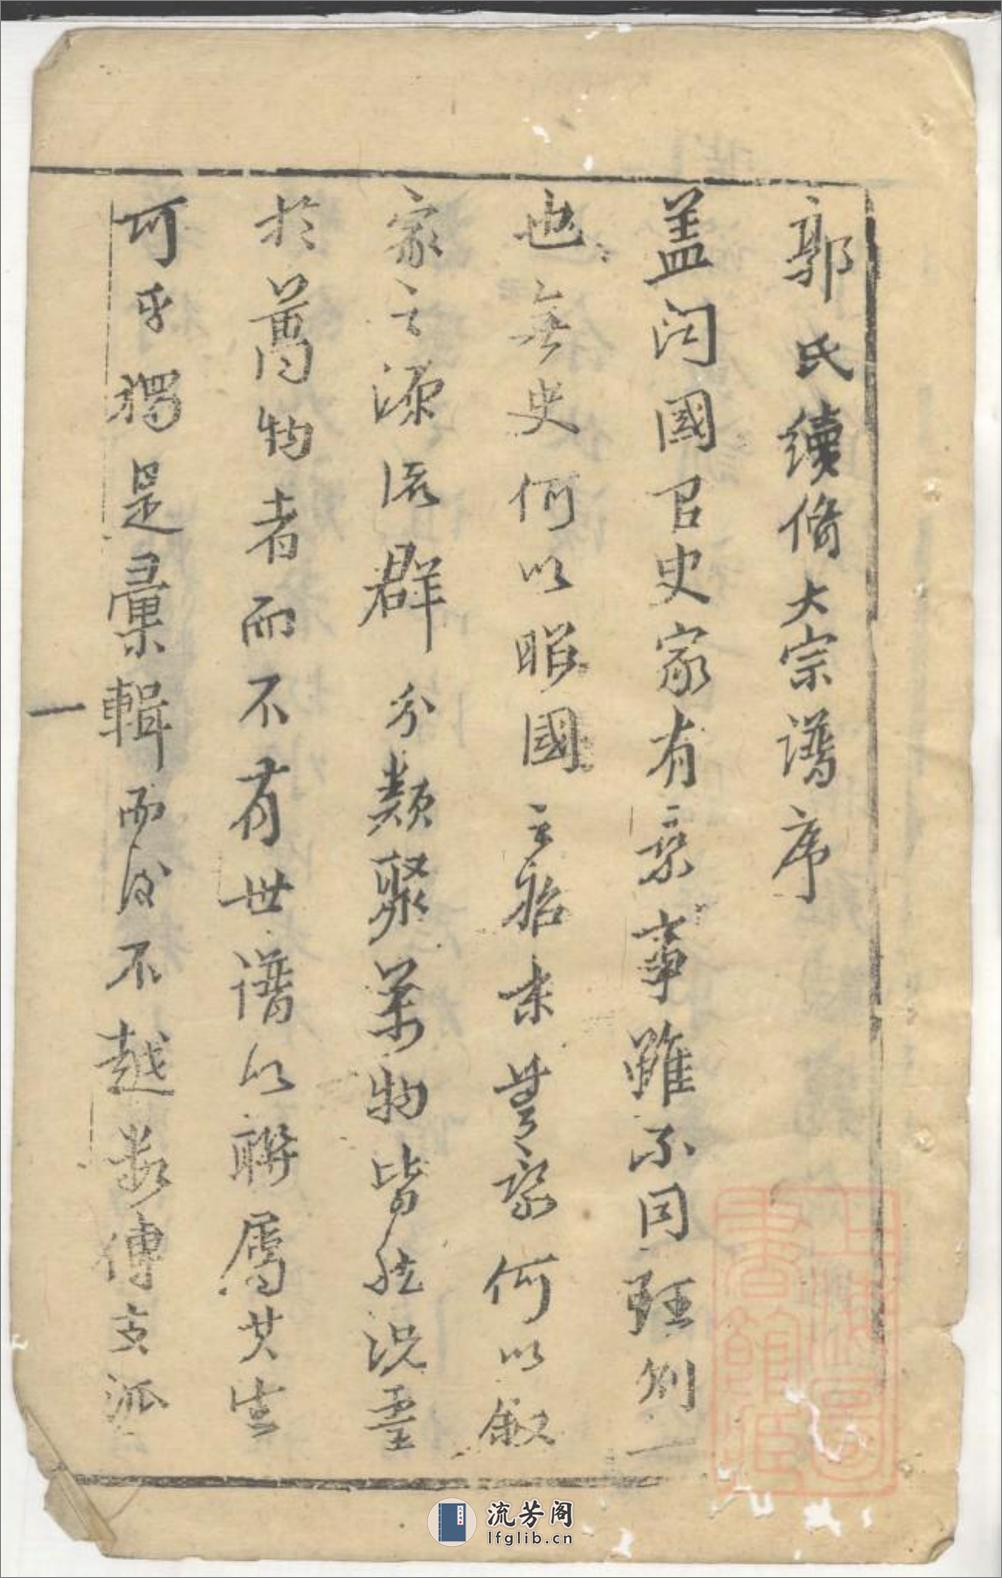 郭氏續脩大宗谱序
盖闻國有史家有乘事雖不同理則一
也無史何以昭國之胎未葺家何以叙
家之源流群分類聚萬物皆然況靈
於萬物者而不有世譜以聯屬其生
可乎獨是彙輯而後不越數傳支派
一
上海圖書館藏
流芳阁
lfglib.cn